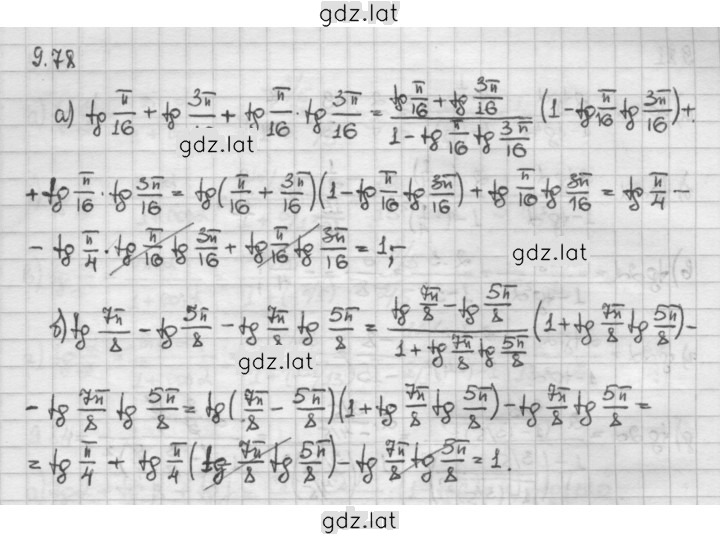 gdz.lat
9.78
а) tg π/16 + tg 3π/ + π/16 · tg 3π/16 = (tg π/16 + tg 3π/16)/(1 - tg π/16 tg 3π/16) (1 - tg π/16 tg 3π/16) +
gdz.lat
+ tg π/16 · tg 3π/16 = tg(π/16 + 3π/16)(1 - tg π/16 tg 3π/16) + tg π/16 tg 3π/16 = tg π/4 -
- tg π/4 · tg π/16 tg 3π/16 + tg π/16 tg 3π/16 = 1;
gdz.lat
б) tg 7π/8 - tg 5π/8 - tg 7π/8 tg 5π/8 = (tg 7π/8 - tg 5π/8)/(1 + tg 7π/8 tg 5π/8) (1 + tg 7π/8 tg 5π/8) -
gdz.lat
- tg 7π/8 tg 5π/8 = tg(7π/8 - 5π/8)(1 + tg 7π/8 tg 5π/8) - tg 7π/8 tg 5π/8 =
= tg π/4 + tg π/4 (tg 7π/8 tg 5π/8) - tg 7π/8 tg 5π/8 = 1.
gdz.lat